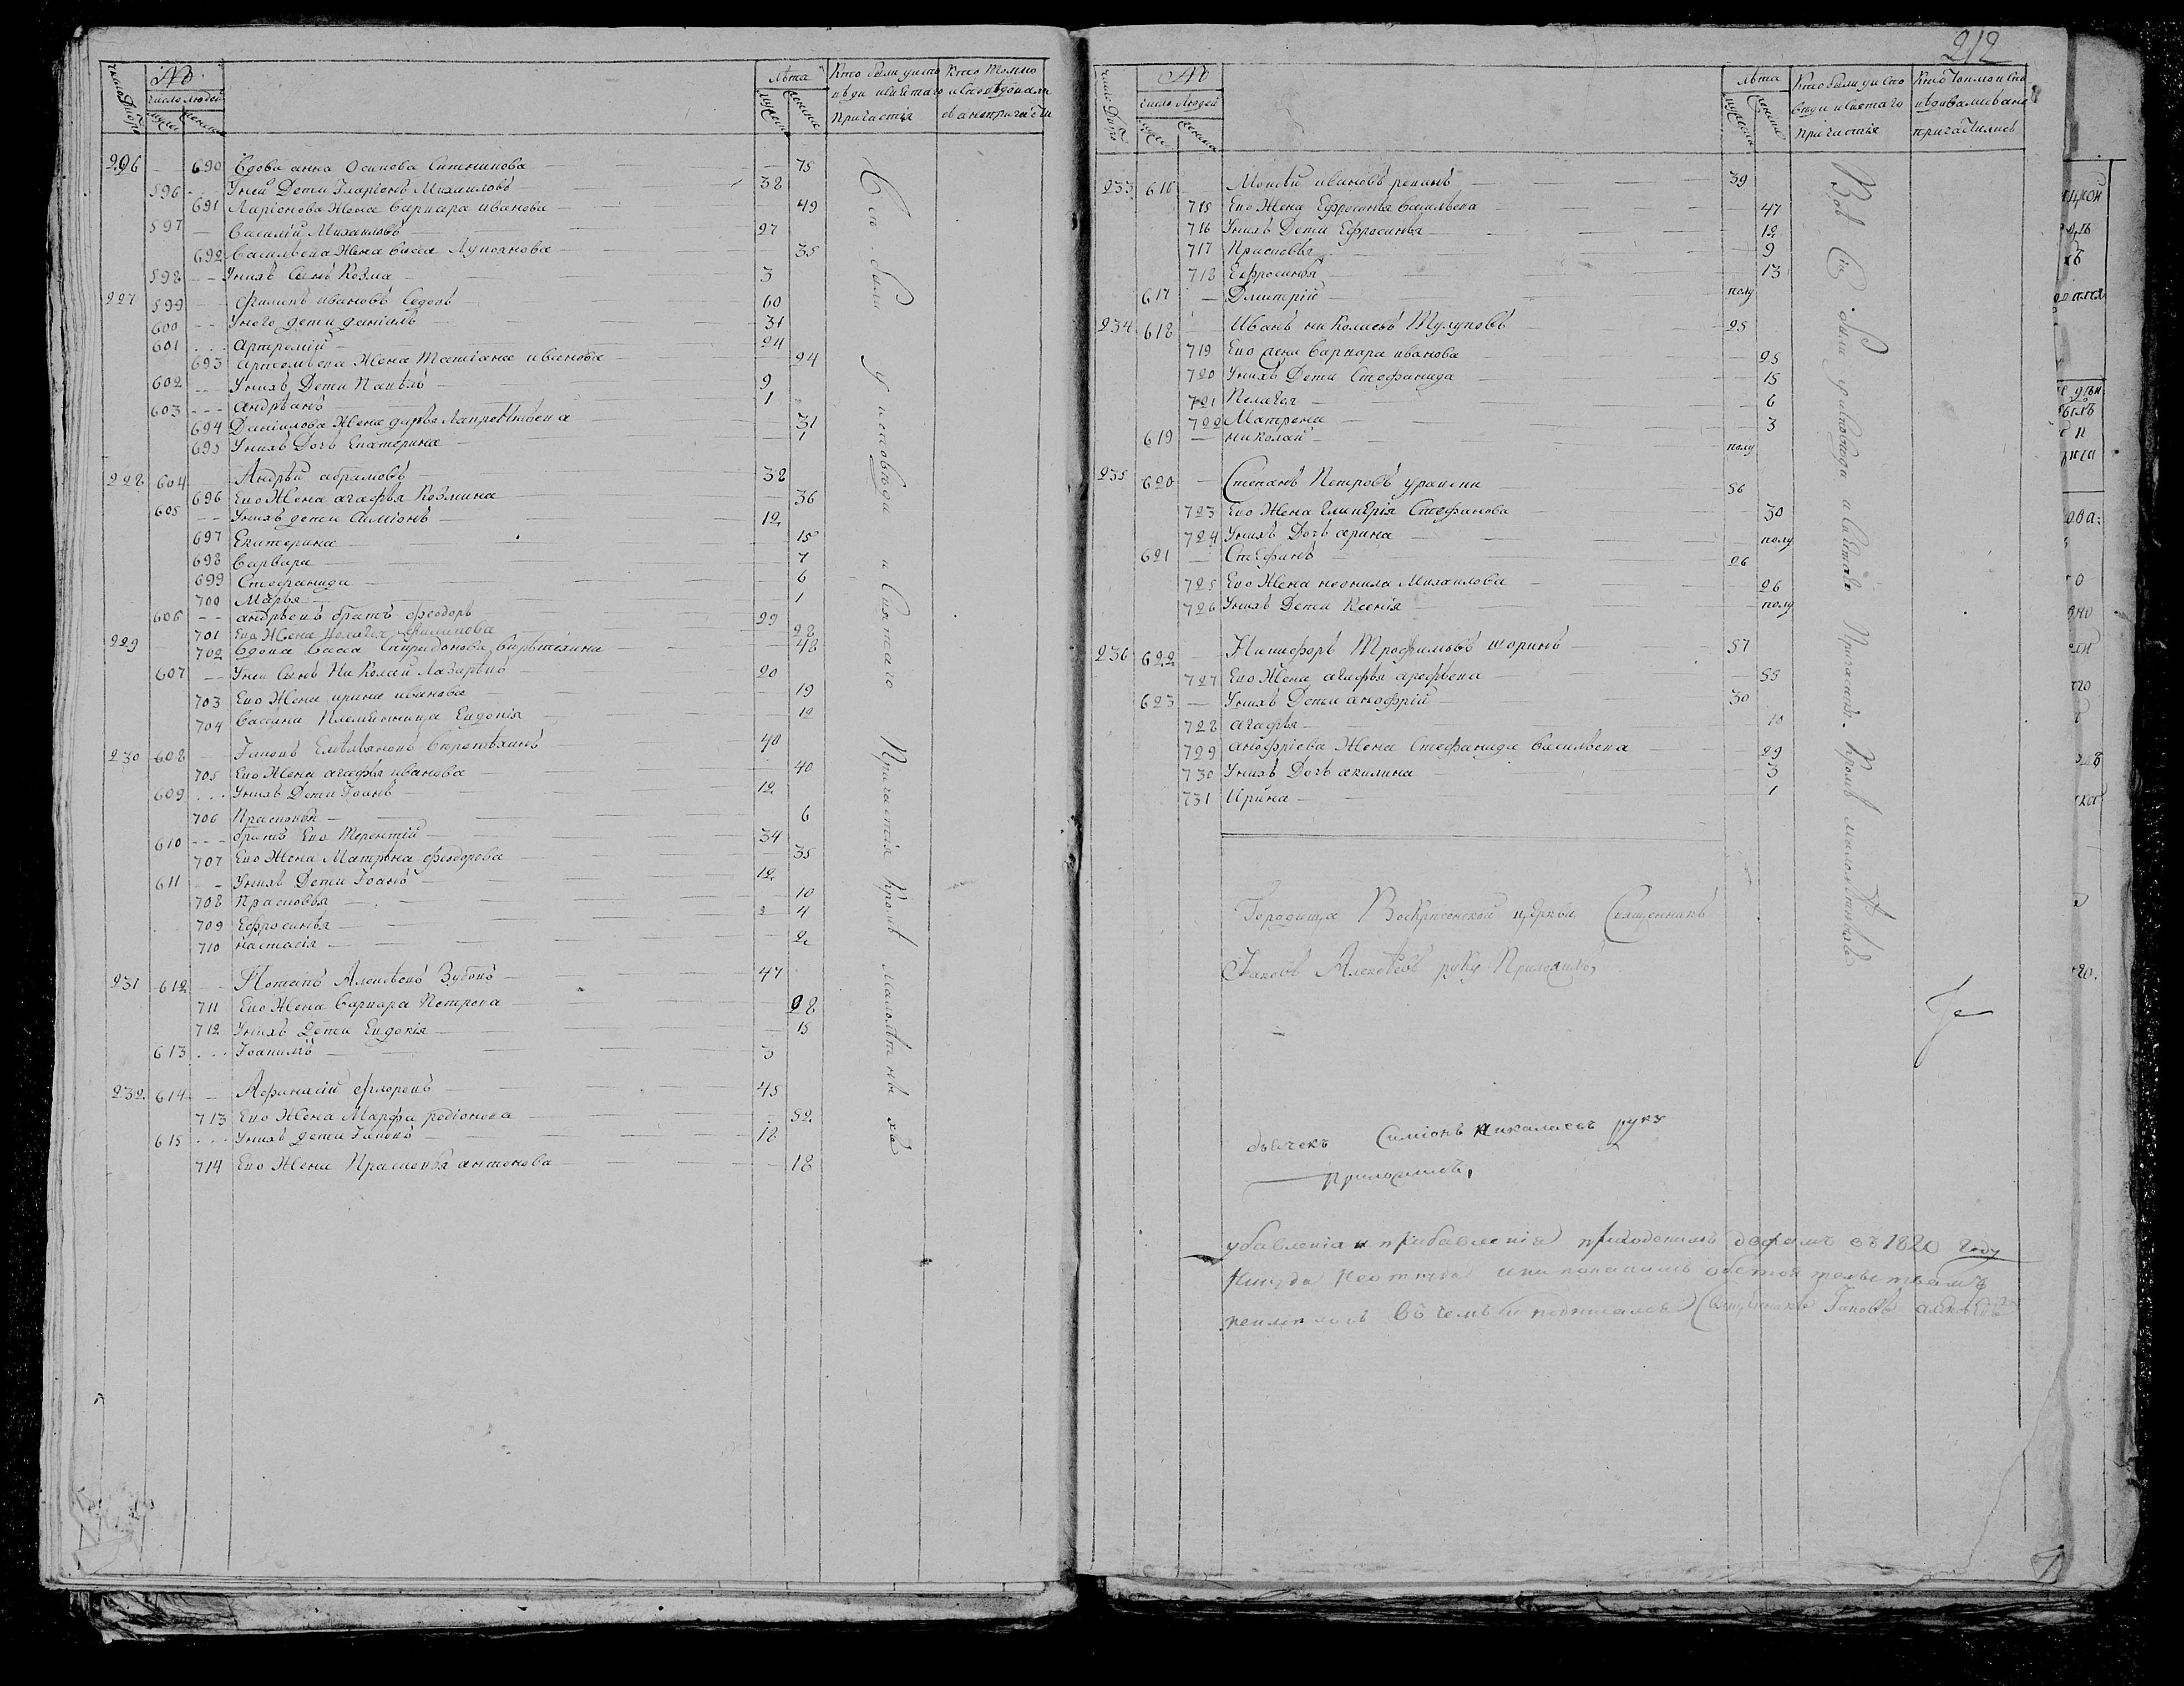 число дворовъ № лѣта Кто были у испо Кто толко
число людей вѣди и святаго исповѣдовали
муска женска мужеска женска причастія ся а непричасти
226 690 Вдова анна Осипова 75
596 Унеи Дети Иларіонъ Михаиловъ 38
691 Ларіонова Жена варвара иванова 49
597 Василіи Михаиловъ 27
692 Васильева Жена васса 35
598 Унихъ Сынъ Козма 3
227 599 Филипъ ивановъ Седовъ 60
600 Унего дети даніилъ 31
601 Артемій 24
693 Артемьева Жена Татіана иванова 24
602 Унихъ Дети Павелъ 9
603 Андрѣанъ 1
694 Даніилова Жена дарья Лаврентьевна 31
695 Унихъ Дочь Екатерина 1
228 604 Андрѣй абрамовъ 38
696 Ево Жена агафья Козмина 36
605 Унихъ дети Симіонъ 12
697 Екатерина 15
698 Варвара 7
699 Стефанида 6
700 Марья 1
606 андрѣевъ братъ феодоръ 29
701 Ево Жена Пелагея филипова 28
229 702 Вдова Васса Спиридонова 48
607 Унеи Сынъ Николаи Лазаревъ 20
703 Ево Жена ирина иванова 19
704 Вассина Племянница Евдокія 12
230 608 Іаковъ Емельяновъ 40
705 Ево Жена агафья иванова 40
609 Унихъ Дети Іоанъ 12
706 Прасковья 6
610 братъ Ево Терентій 34
707 Ево Жена Матрена феодорова 35
611 Унихъ Дети Іоанъ 12
708 Прасковья 10
709 Ефросинья 4
710 Настасія 2
231 612 Потапъ Алексѣевъ Зубовъ 47
711 Ево Жена Варвара Петрова 28
712 Унихъ Дети Евдокія 15
613 Іоакимъ 3
232 614 Афанасіи фларовъ 45
713 Ево Жена Марфа родіонова 52
615 Унихъ дети Іаковъ 18
714 Ево Жена Прасковья антонова 18
Сіи были у исповѣди и Святаго Причастія кромѣ малолѣтныхъ
212
число дворовъ № лѣта Кто были у испо Кто токмо испо
число людей вѣди и святаго вѣдовалися а не
муска женска мужеска женска причастія причастились
233 616 Моисѣй ивановъ 39
715 Ево Жена Ефросинья васильева 47
716 Унихъ Дети Ефросинья 12
717 Прасковья 9
718 Евфросинья 13
617 Дмитрій полу
234 618 Иванъ николаевъ Тулуповъ 25
719 Ево жена варвара иванова 25
720 Унихъ Дети Стефанида 15
721 Пелагея 6
722 Матрена 3
619 николай полу
235 620 Степанъ Петровъ 56
723 Ево Жена Гликерія Стефанова 30
724 Унихъ Дочь арина полу
621 Стефанъ 26
725 Ево Жена неонила Михаилова 26
726 Унихъ Дети Ксенія полу
236 622 Никифоръ Трофимовъ шоринъ 57
727 Ево Жена агафья арефьева 55
623 Унихъ Дети анофрій 30
728 агафья 10
729 анофріева Жена Стефанида васильева 29
730 Унихъ Дочь акилина 3
731 Ирина 1
Всѣ Сіи были у исповѣди и Святаго Причастія кромѣ малолѣтныхъ
Городища Воскресенской церкви Священникъ
Іаковъ Алексѣевъ руку Приложилъ
дьячекъ Симіонъ николаевъ руку
приложилъ,
убавленія и прибавленія приходскимъ дворамъ въ 1820 году
никуда неоткуда ипо каковымъ обстоятельствамъ
неимѣлось въ чемъ и подписался Священникъ Іаковъ алексѣевъ